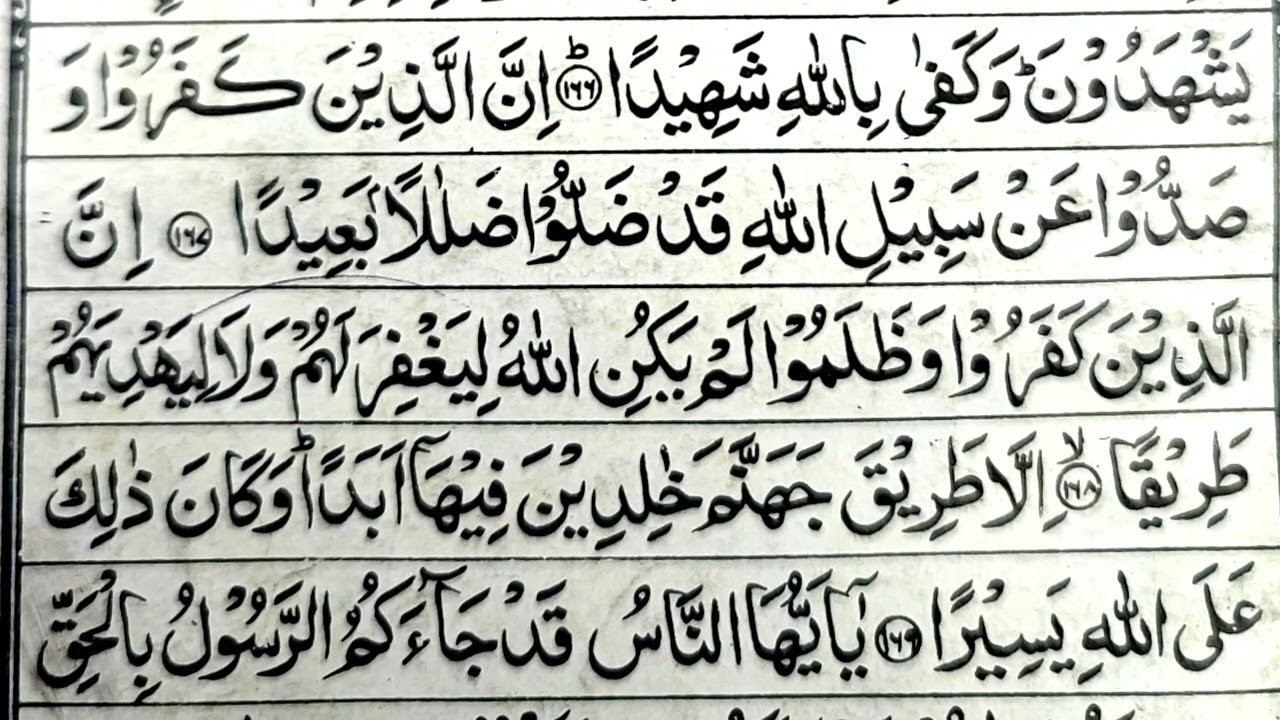 يَشْهَدُوْنَ ؕ وَكَفٰى بِاللّٰهِ شَهِيْدًا ؕ ۝۱۶۶ اِنَّ الَّذِيْنَ كَفَرُوْا وَ
صَدُّوْا عَنْ سَبِيْلِ اللّٰهِ قَدْ ضَلُّوْا ضَلٰلًاۢ بَعِيْدًا ۝۱۶۷ اِنَّ
الَّذِيْنَ كَفَرُوْا وَظَلَمُوْا لَمْ يَكُنِ اللّٰهُ لِيَغْفِرَ لَهُمْ وَلَا لِيَهْدِيَهُمْ
طَرِيْقًا ۙ ۝۱۶۸ اِلَّا طَرِيْقَ جَهَنَّمَ خٰلِدِيْنَ فِيْهَاۤ اَبَدًا ؕ وَكَانَ ذٰلِكَ
عَلَى اللّٰهِ يَسِيْرًا ۝۱۶۹ يٰۤاَيُّهَا النَّاسُ قَدْ جَآءَكُمُ الرَّسُوْلُ بِالْحَقِّ